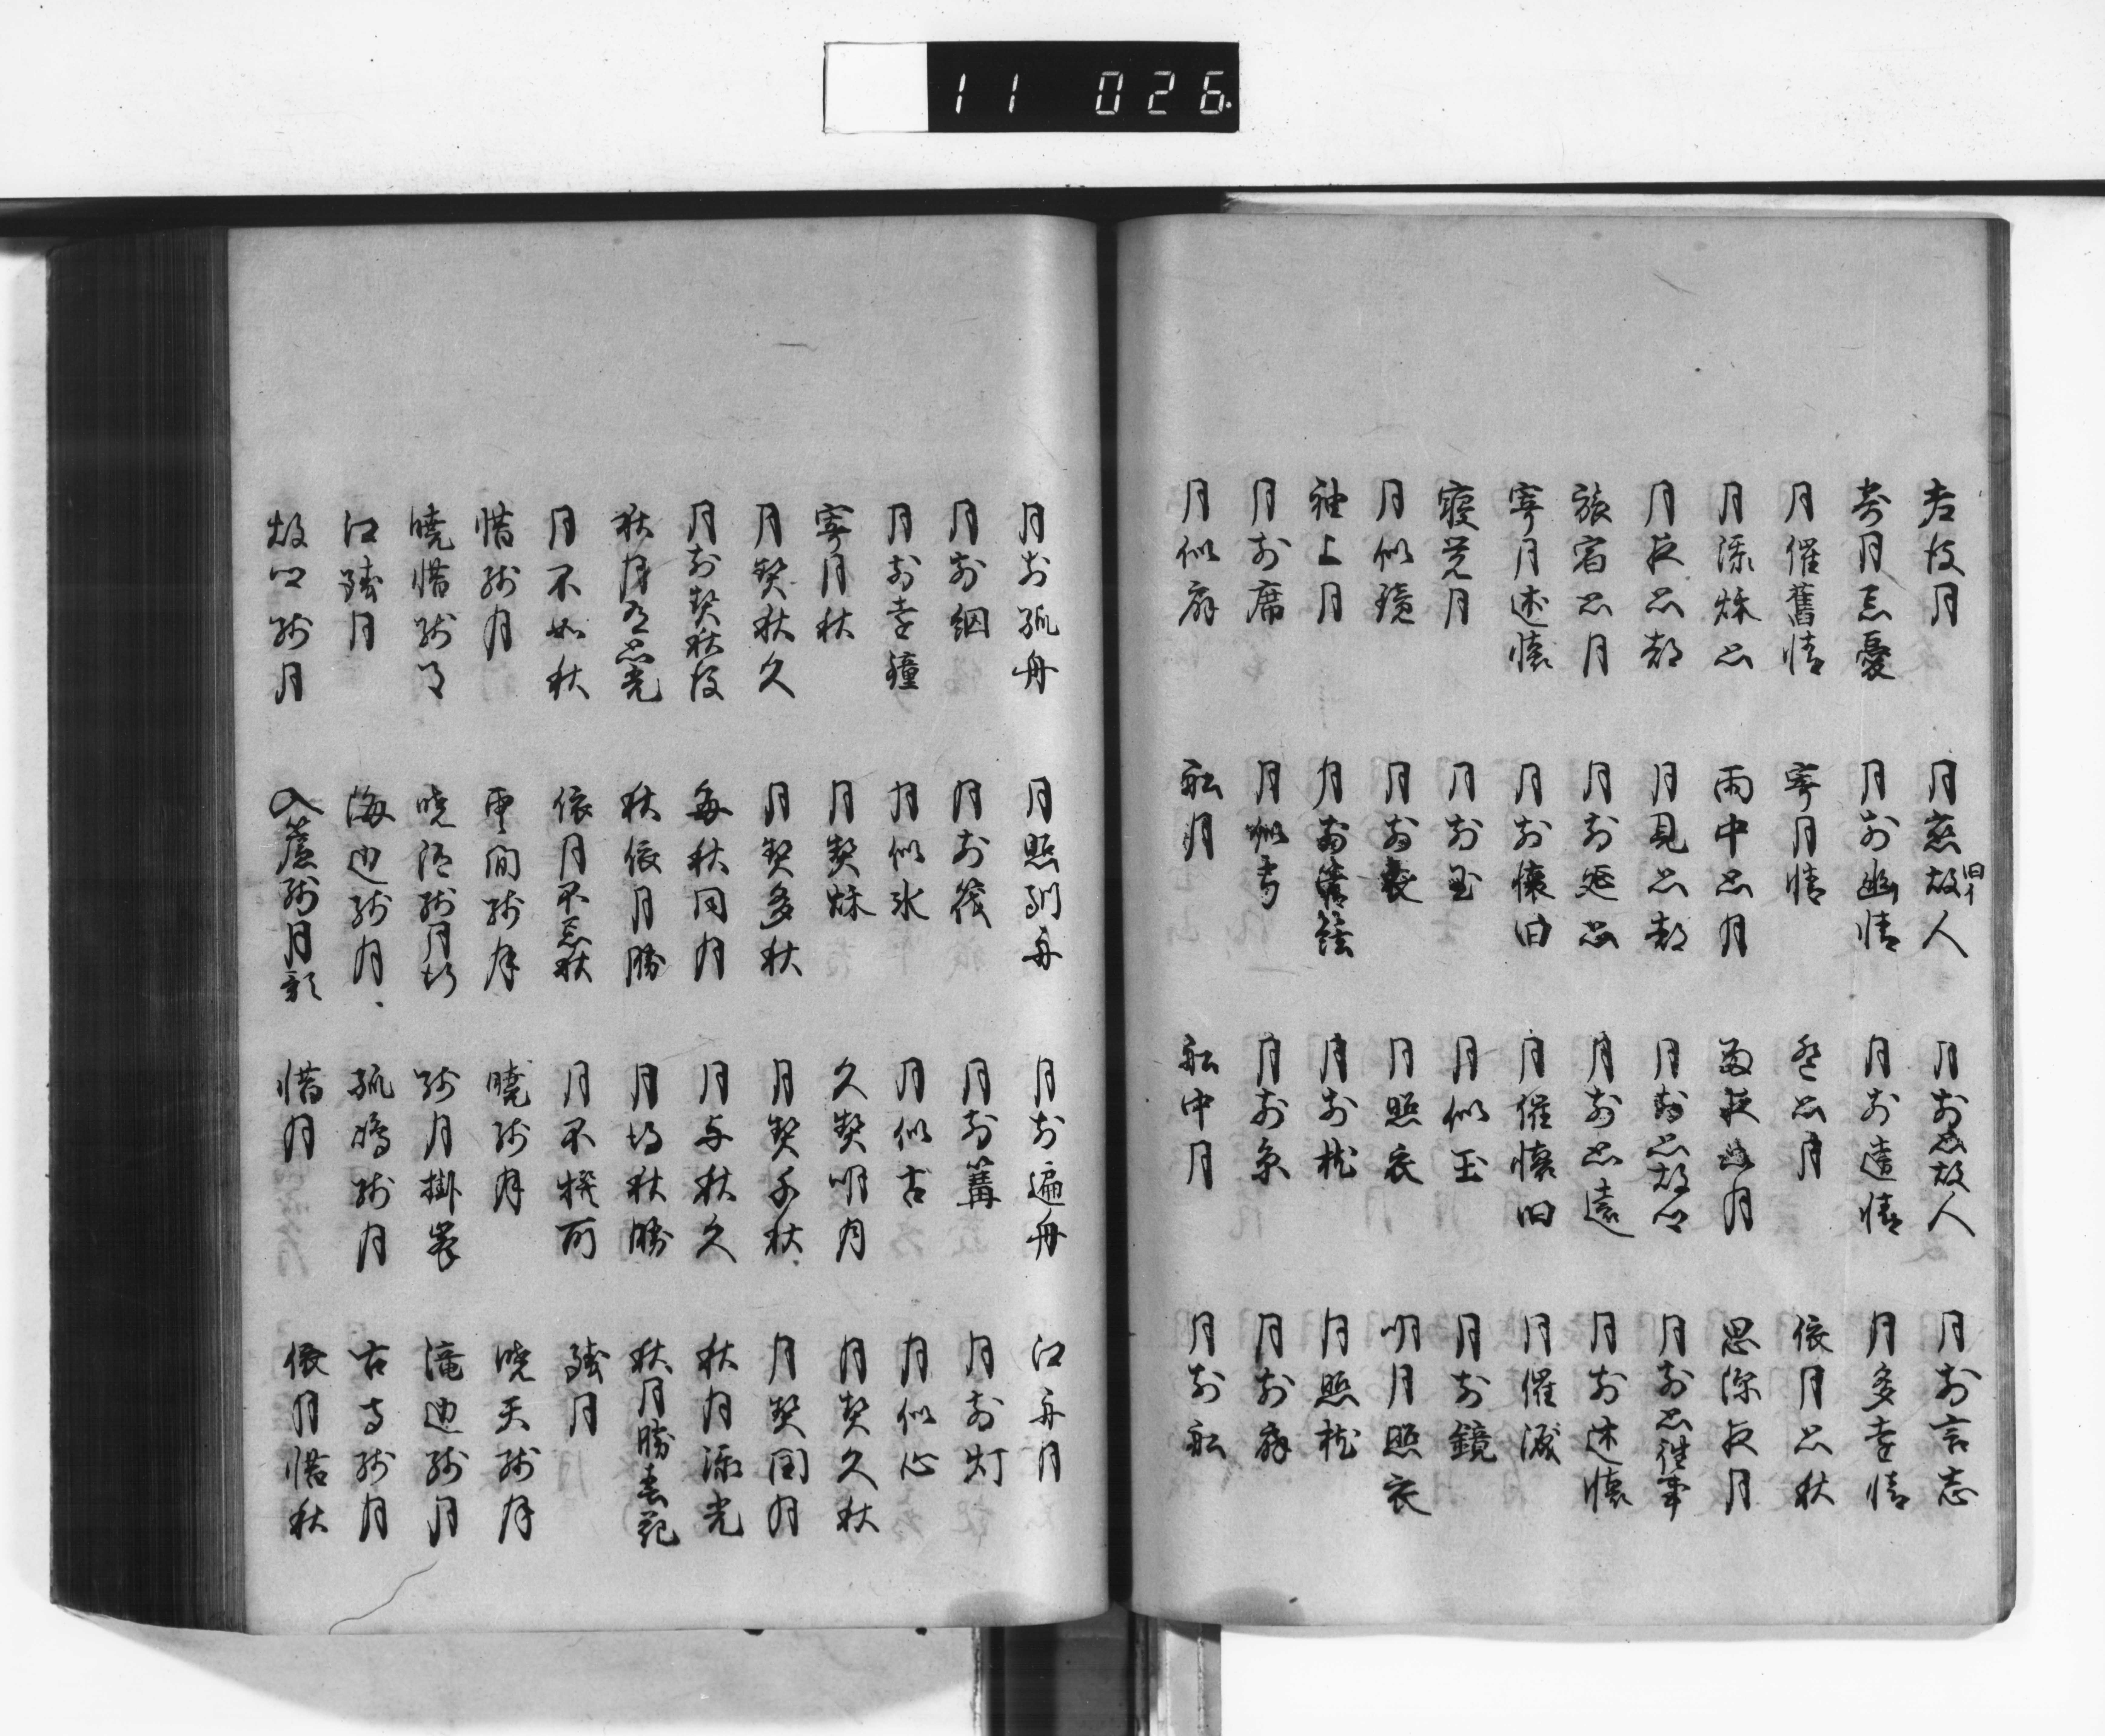 老後月　月恋故人　旧イ　月前思故人　月前言志
月忘憂　月前幽情　月前遠情　月多情
月催舊情　寄月情　思月　依月思秋
月添秋思　雨中思月　雨夜思月　思深夜月
月夜思都　月見思都　月前思故郷　月前思往事
旅宿思月　月前遠思　月前思遠　月前述懐
寄月述懐　月前懐旧　月催懐旧　月催涙
寝覚月　月前玉　月似玉　月前鏡
月似鏡　月前衣　月照衣　明月照衣
袖上月　月前　月前枕　月照枕
月前席　月似弓　月前糸　月前扇
月似扇　船月　船中月　月前船
月前孤舟　月照釣舟　月前遍舟　江舟月
月前網　月前筏　月前篝　月前灯
月前鐘　月似氷　月似古　月似心
寄月秋　月契秋　久契明月　月契久秋
月契秋久　月契多秋　月契千秋　月契閏月
月前契秋後　毎秋同月　月与秋久　秋月添光
秋月光　秋依月勝　月得秋勝　秋月勝春花
月不如秋　依月不忘秋　月不撰所　残月
惜残月　雲間残月　暁残月　暁天残月
暁惜残月　暁残月　残月掛峯　滝辺残月
江残月　海辺残月　孤嶋残月　古寺残月
故郷残月　入簾残月影　惜月　依月惜秋
11 026